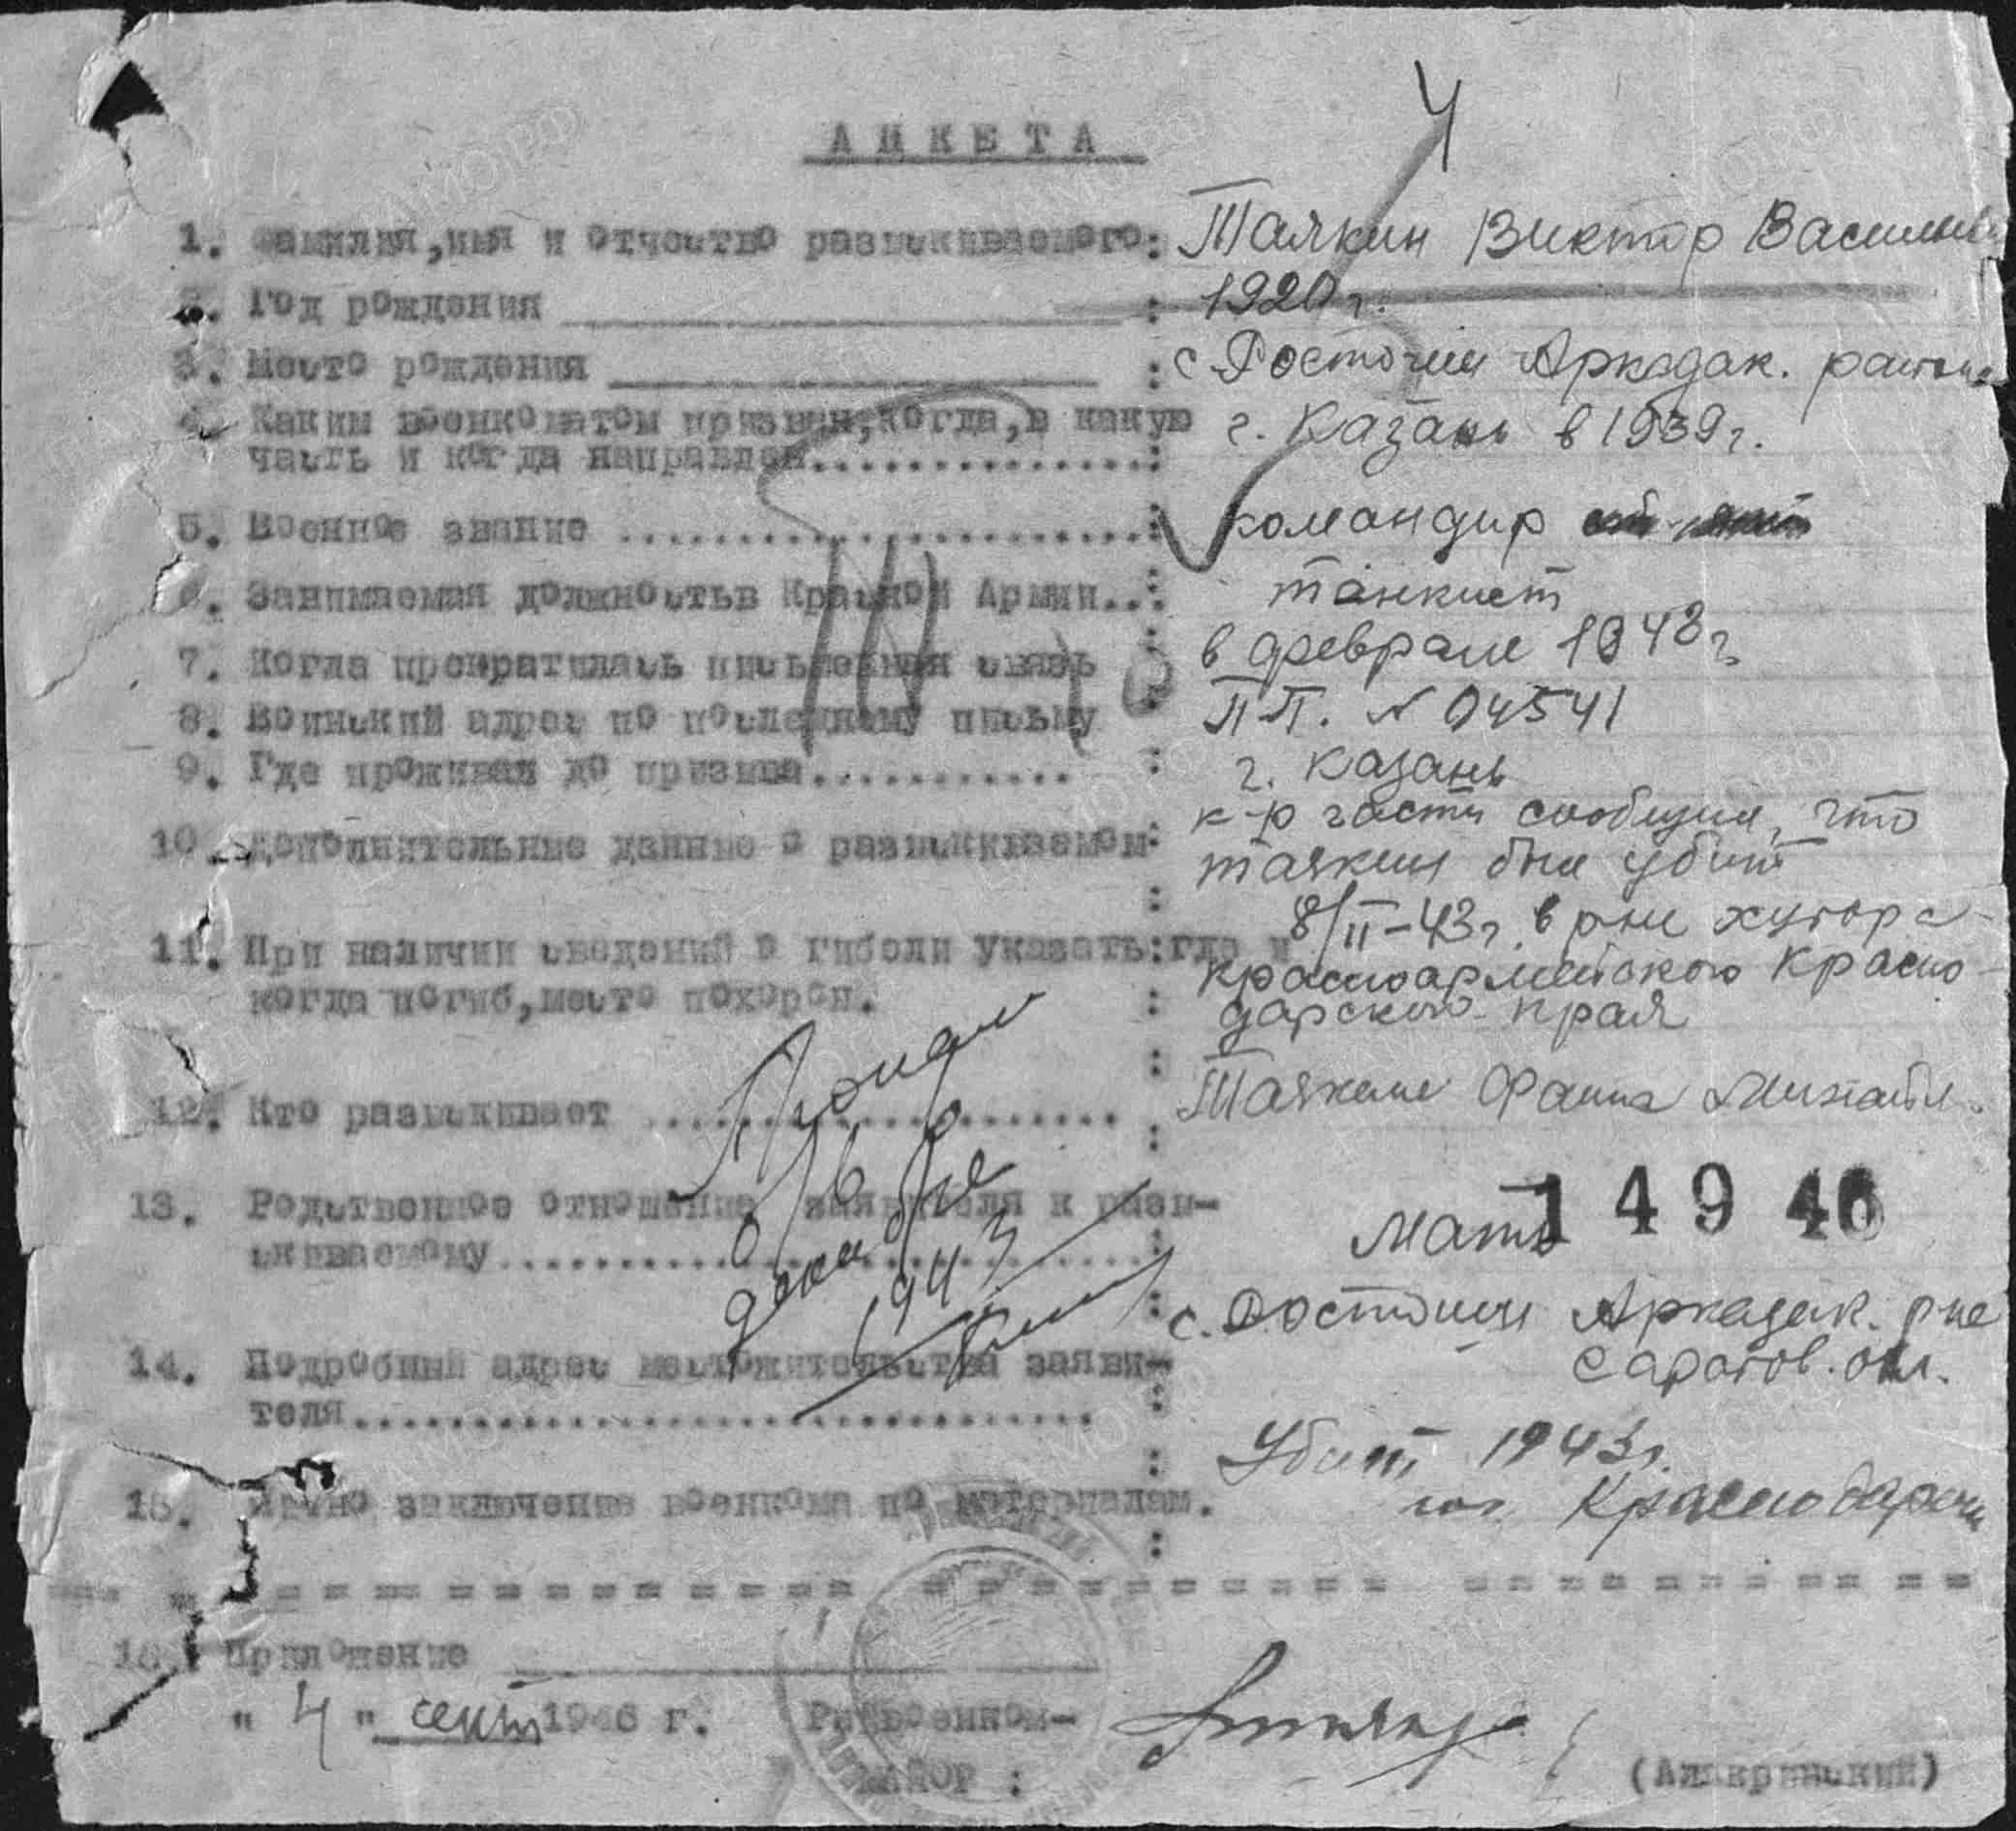 4
АНКЕТА
1. Фамилия,имя и отчество разыскиваемого: Таякин Виктор Василье
2. Год рождения : 1920 г.
3. Место рождения : с Росташи Аркадак. района
4. Каким военкоматом призван,когда,в какую г. Казань в 1939 г.
часть и когда направлен...............:
5. Военное звание ........................: командир
6. Занимаемая должностьв Красной Армии..: танкист
7. Когда прекратилась письменная связь в феврале 1943 г.
8. Воинский адрес по последнему письму : ПП. № 04541
9. Где проживал до призыва............. : г. Казань
к-р части сообщил, что
10. Дополнительные данные о разыскиваемом: таякин был убит
8/II-43г. в р-не хутора
11. При наличии сведений о гибели указать:где и красноармейского Красно-
когда погиб,место похорон. : дарского края
12. Кто разыскивает ........................ : Таякина Фаина Михайл.
Пропал
б/в
декабре
1943
13. Родственное отношение заявителя к разы-
скиваемому........................: мать
14946
с. Росташи Аркадак. р-не
14. Подробный адрес местожительства заяви- Саратов. обл.
теля................................ :
Убит 1943г.
15. Ясное заключение военкома по материалам. Краснодарск
16. Приложение
" 4 " сент 1946 г. Райвоенком-
МАЙОР : (Алякринский)